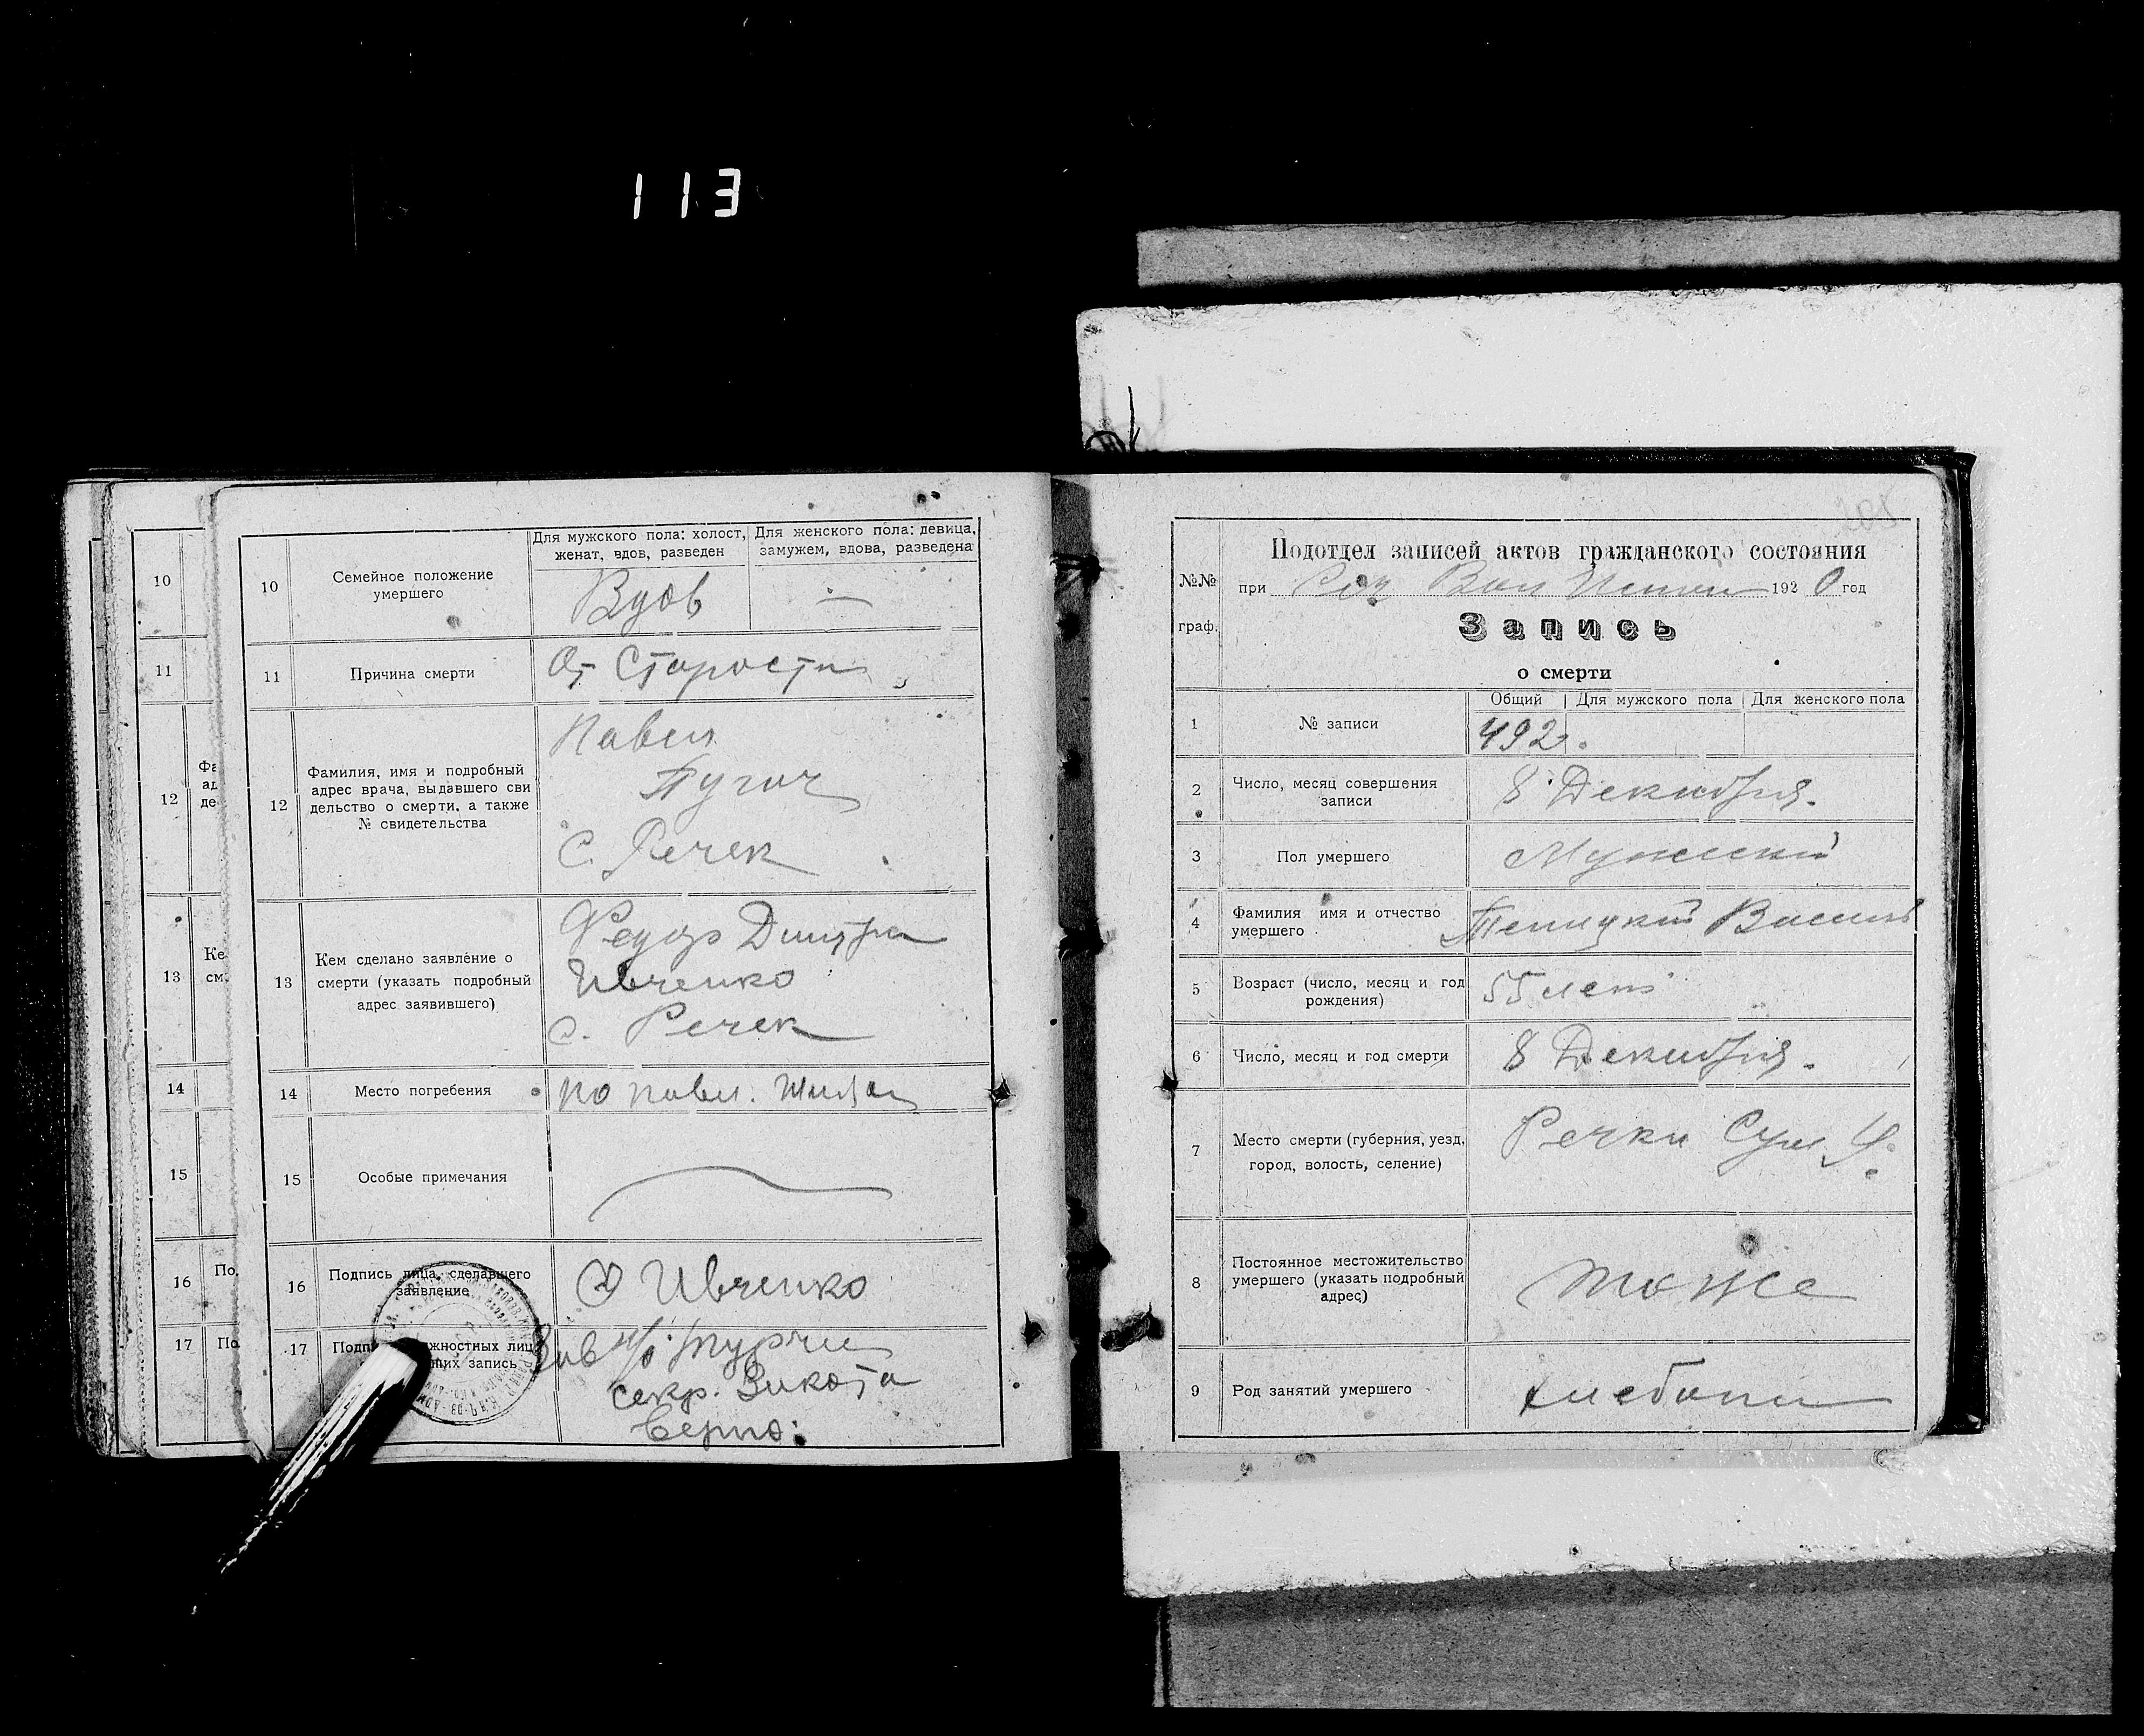 113
10
11
12
13
14
15
16
17
Фа
ад
де
Ке
см.
По.
По
10
Семейное положение
умершего
Для мужского пола: холост,
женат, вдов, разведен
Для женского пола: девица,
замужем, вдова, разведена
Вдов
—
11
Причина смерти
От Старости
12
Фамилия, имя и подробный
адрес врача, выдавшего сви
дельство о смерти, а также
№ свидетельства
Павел
Пугач
С. Речек
13
Кем сделано заявление о
смерти (указать подробный
адрес заявившего)
Федор Дмитри
Ивченко
с. Речек
14
Место погребения
по павл.
15
Особые примечания
16
Подпись лица, сделавшего
заявление
Ф Ивченко
17
Подпи жностных лиц
их запись
Зав
секр.
Верно:
205
№№
граф.
Подотдел записей актов гражданского состояния
при Реч Вол 1920 год
Запись
о смерти
Общий
Для мужского пола
Для женского пола
1
№ записи
492.
2
Число, месяц совершения
записи
8 Декабря.
3
Пол умершего
Мужеский
4
Фамилия имя и отчество
умершего
Василь
5
Возраст (число, месяц и год
рождения)
55 лет
6
Число, месяц и год смерти
8 Декабря.
7
Место смерти (губерния, уезд,
город, волость, селение)
Речки Сум У.
8
Постоянное местожительство
умершего (указать подробный
адрес)
тоже
9
Род занятий умершего
хлебопа